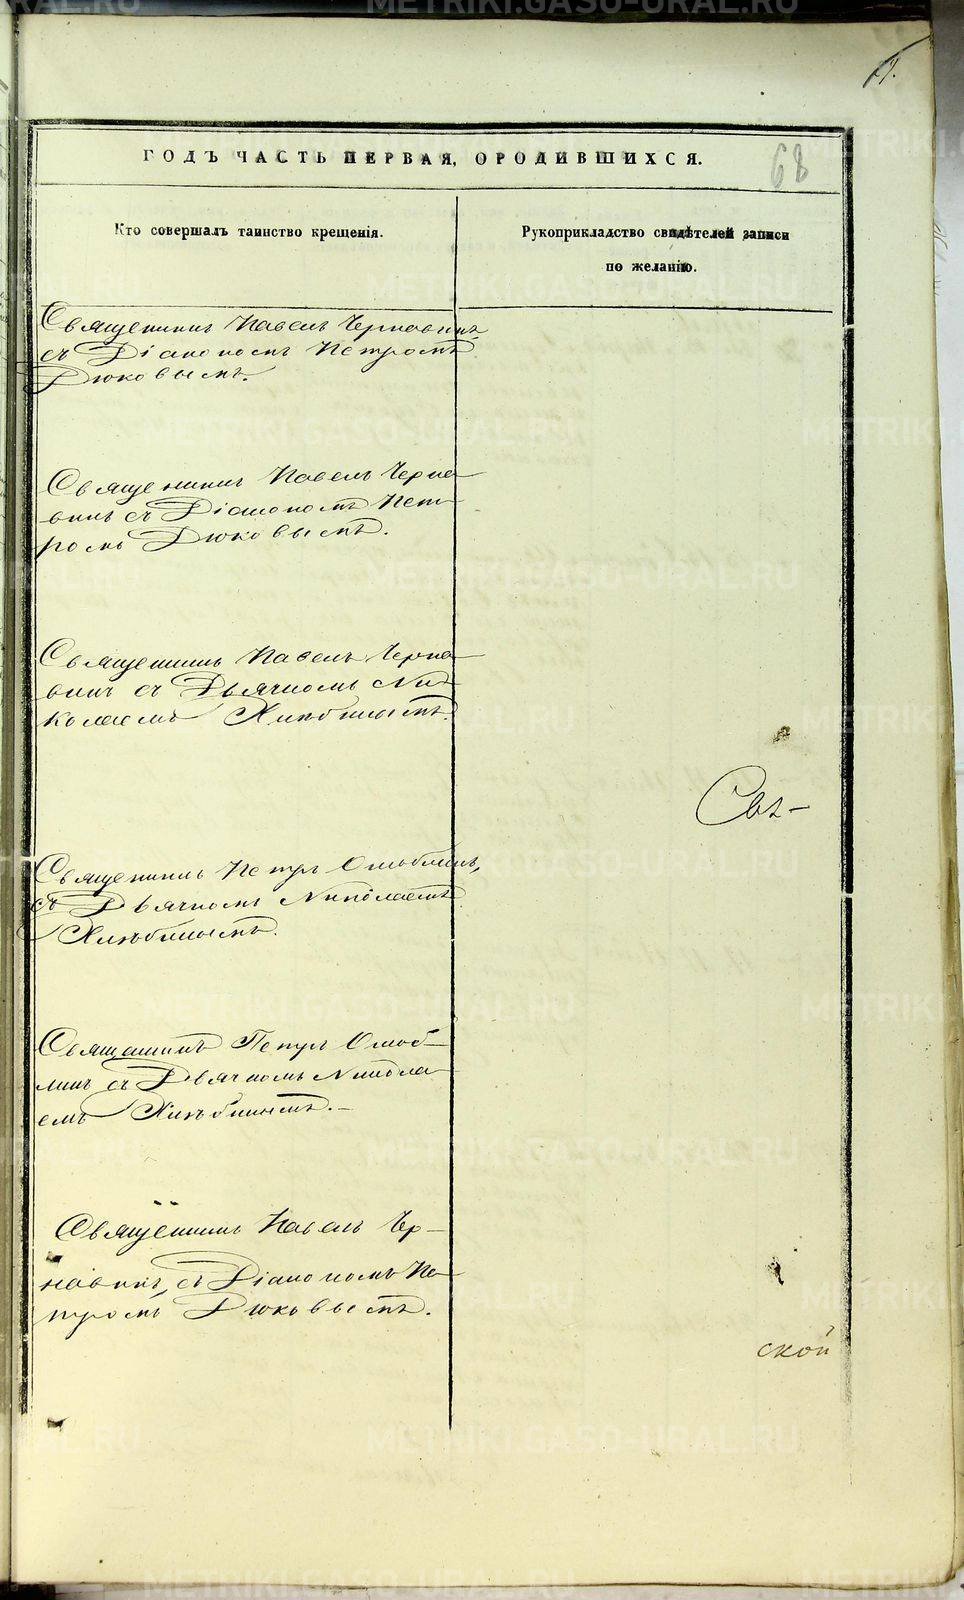 67.
68
ГОДЪ ЧАСТЬ ПЕРВАЯ, ОРОДИВШИХСЯ.
Кто совершалъ таинство крещенія.
Рукоприкладство свидѣтелей записи
по желанію.
Священникъ Павелъ Чернавинъ
съ Діакономъ Петромъ
Дюковымъ.
Священникъ Павелъ Черна
винъ съ Діакономъ Пет
ромъ Дюковымъ.
Священникъ Павелъ Черна
винъ съ Дьячкомъ Ни
колаемъ Хлѣбинымъ.
Свя-
Священникъ Петръ
съ Дьячкомъ Николаемъ
Хлѣбинымъ.
Священникъ Петръ
съ Дьячкомъ Никола
емъ Хлѣбинымъ.-
Священникъ Павелъ Чер-
навинъ, съ Діакономъ Пе
тромъ Дюковымъ.
ской
METRIKI.GASO-URAL.RU